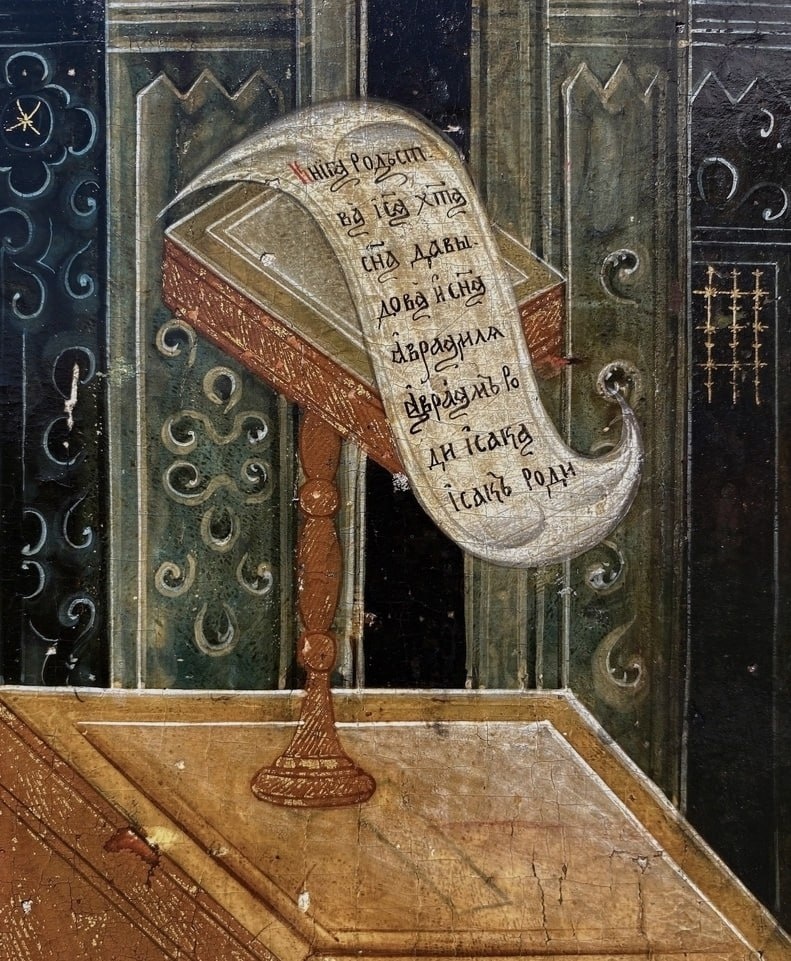 Книга Родъст
ва і҃са х҃та
сн҃а давы
дова и сн҃а
авраамля
авраамъ ро
ди ісака
ісакъ роди